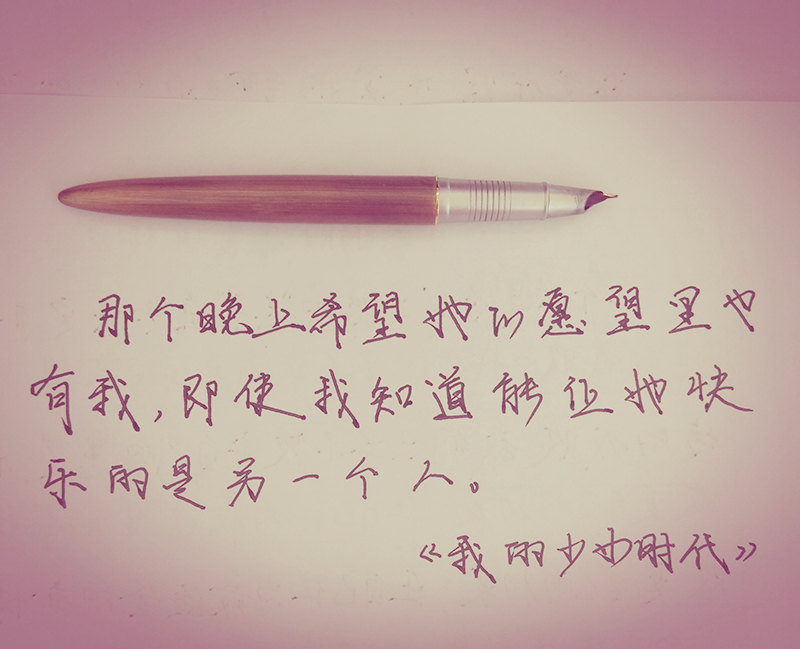 那个晚上希望她的愿望里也
有我，即使我知道能让她快
乐的是另一个人。
《我的少女时代》